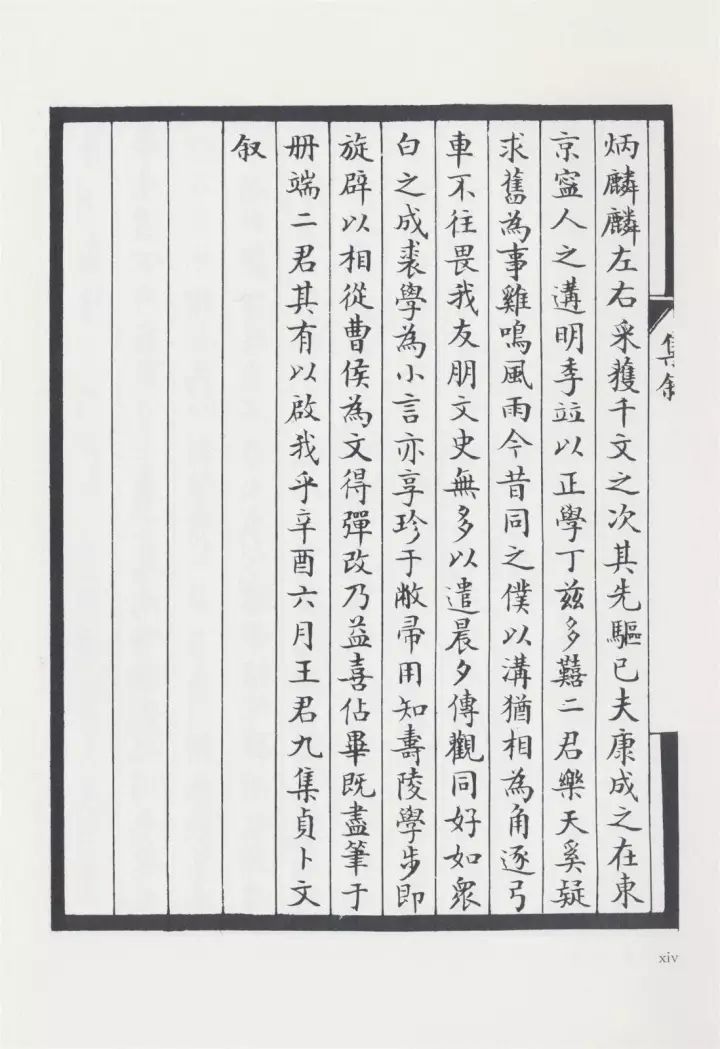 集叙
炳麟麟左右采獲千文之次其先驅已夫康成之在東
京寍人之遘明季竝以正學丁兹多囏二君樂天奚疑
求舊為事雞鳴風雨今昔同之僕以溝猶相為角逐弓
車不往畏我友朋文史無多以遣晨夕傳觀同好如衆
白之成裘學為小言亦享珍于敝帚用知壽陵學步即
旋辟以相從曹侯為文得彈改乃益喜佔畢既盡筆于
册端二君其有以啟我乎辛酉六月王君九集貞卜文
叙
xiv